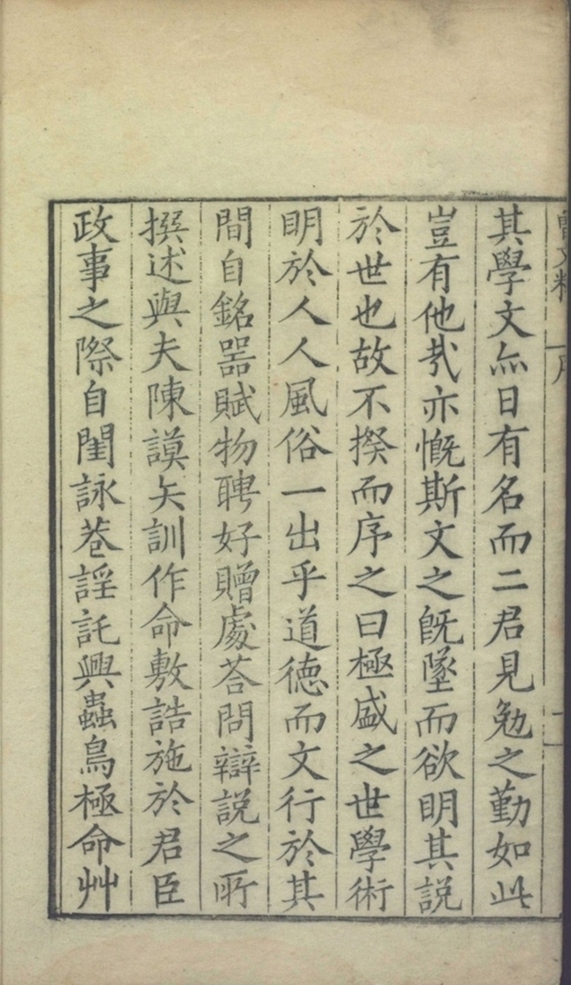 曾文粹 序 二
其學文亦日有名而二君見勉之勤如此
豈有他㢤亦慨斯文之旣墜而欲明其説
於世也故不揆而序之曰極盛之世學術
明於人人風俗一出乎道德而文行於其
間自銘噐賦物聘好贈處荅問辯説之所
撰述與夫陳謨矢訓作命敷誥施於君臣
政事之際自閨詠巷謡託興蟲鳥極命艸